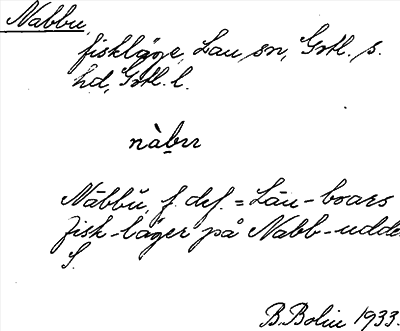 Nabbu,
fiskläge, Lau sn, Gotl. s.
hd, Gotl. l.
nàbu
Nābbŭ, f. def. = Lau-boars
fisk-läger på Nabb-udde
S.
B. Bolin 1933.